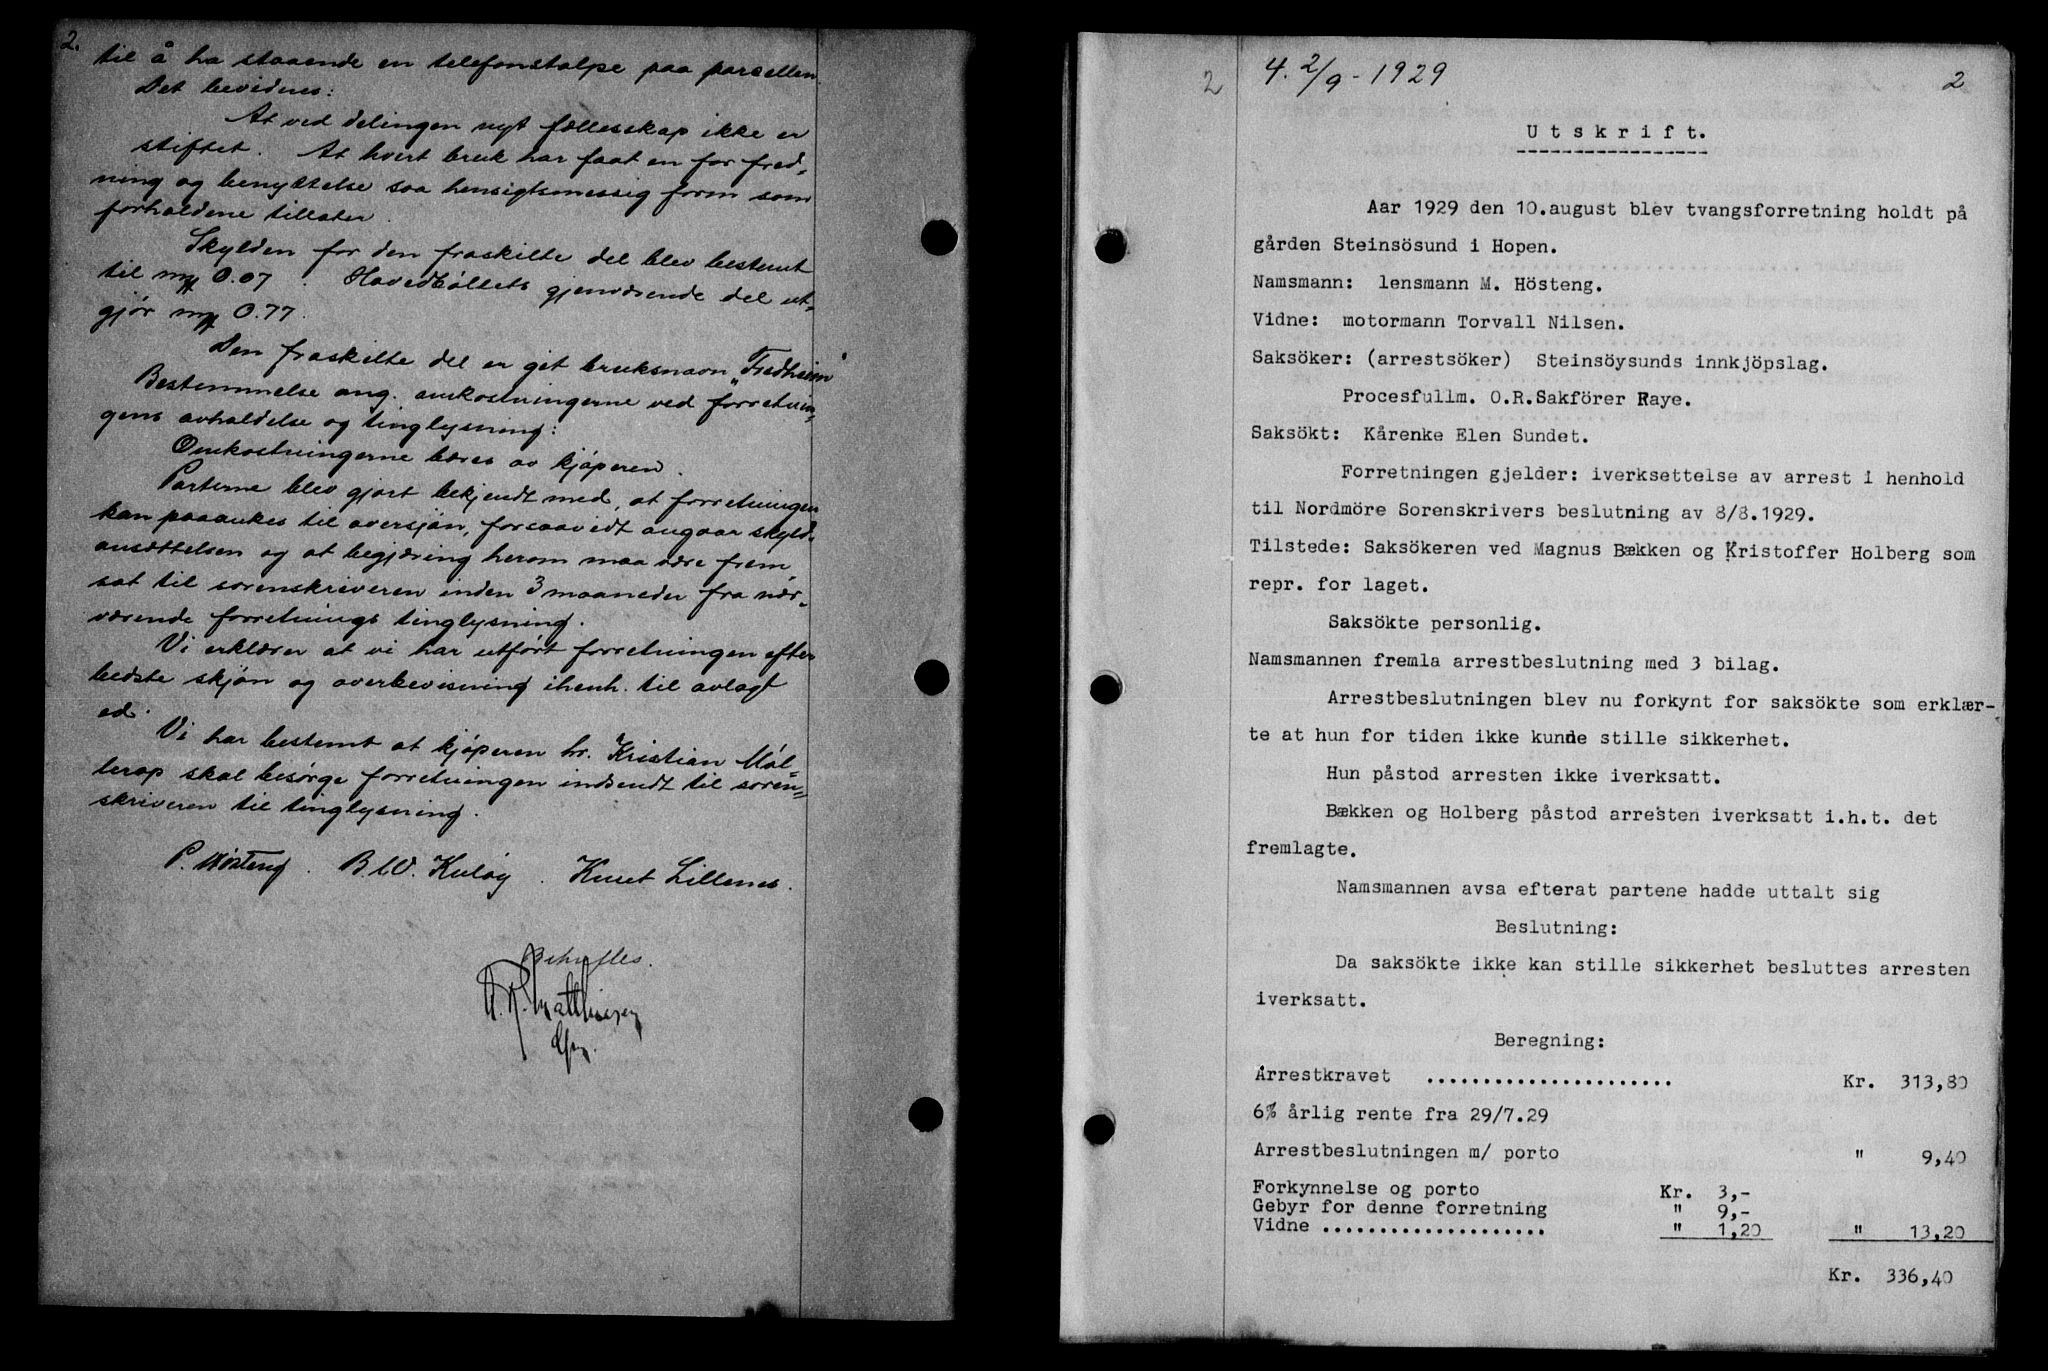 2.
til å ha staaende en telefonstolpe paa parsellen.
Det bevidnes:
At ved delingen nyt fællesskap ikke er
stiftet. At hvert bruk har faat en for fred-
ning og benyttelse saa hensigtsmessig form som
forholdene tillater.
Skylden for den fraskilte del blev bestemt
til mk 0.07. Hovedbøllets gjenværende del ut-
gjör mk 0.77.
Den fraskilte del er git bruksnavn "Fredheim"
Bestemmelse ang. omkostningerne ved forretnin-
gens avholdelse og tinglysning:
Omkostningerne bæres av kjøperen.
Parterne blev gjort bekjendt med, at forretningen
kan paaankes til overskjøn, forsaavidt angaar skyld-
ansættelsen og at begjæring herom maa være frem-
sat til sorenskriveren inden 3 maaneder fra nær-
værende forretnings tinglysning.
Vi erklærer at vi har utført forretningen efter
bedste skjøn og overbevisning i henh. til avlagt
ed.
Vi har bestemt at kjøperen hr. Kristian Møl-
lerop skal besørge forretningen indsendt til soren-
skriveren til tinglysning.
P. Høsteng. B.W. Kuløy. Knut Lillenes.
Bekreftes.
2
4. 2/9 - 1929
2
Utskrift.
Aar 1929 den 10.august blev tvangsforretning holdt på
gården Steinsösund i Hopen.
Namsmann: lensmann M. Hösteng.
Vidne: motormann Torvall Nilsen.
Saksöker: (arrestsöker) Steinsöysunds innkjöpslag.
Procesfullm. O.R.Sakförer Raye.
Saksökt: Kårenke Elen Sundet.
Forretningen gjelder: iverksettelse av arrest i henhold
til Nordmöre Sorenskrivers beslutning av 8/8.1929.
Tilstede: Saksökeren ved Magnus Bækken og Kristoffer Holberg som
repr. for laget.
Saksökte personlig.
Namsmannen fremla arrestbeslutning med 3 bilag.
Arrestbeslutningen blev nu forkynt for saksökte som erklær-
te at hun for tiden ikke kunde stille sikkerhet.
Hun påstod arresten ikke iverksatt.
Bækken og Holberg påstod arresten iverksatt i.h.t. det
fremlagte.
Namsmannen avsa efterat partene hadde uttalt sig
Beslutning:
Da saksökte ikke kan stille sikkerhet besluttes arresten
iverksatt.
Beregning:
Arrestkravet ...................... Kr. 313,80
6% årlig rente fra 29/7.29
Arrestbeslutningen m/ porto " 9,40
Forkynnelse og porto Kr. 3,-
Gebyr for denne forretning " 9,-
Vidne .................... " 1,20 " 13,20
Kr. 336,40